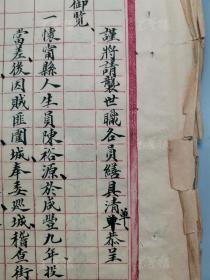 謹將請襲世職各員繕具清單恭呈
御覽
一懷甯縣人生員陳裕源於咸豐九年投
當差後因賊匪圍城奉委廵城稽查街